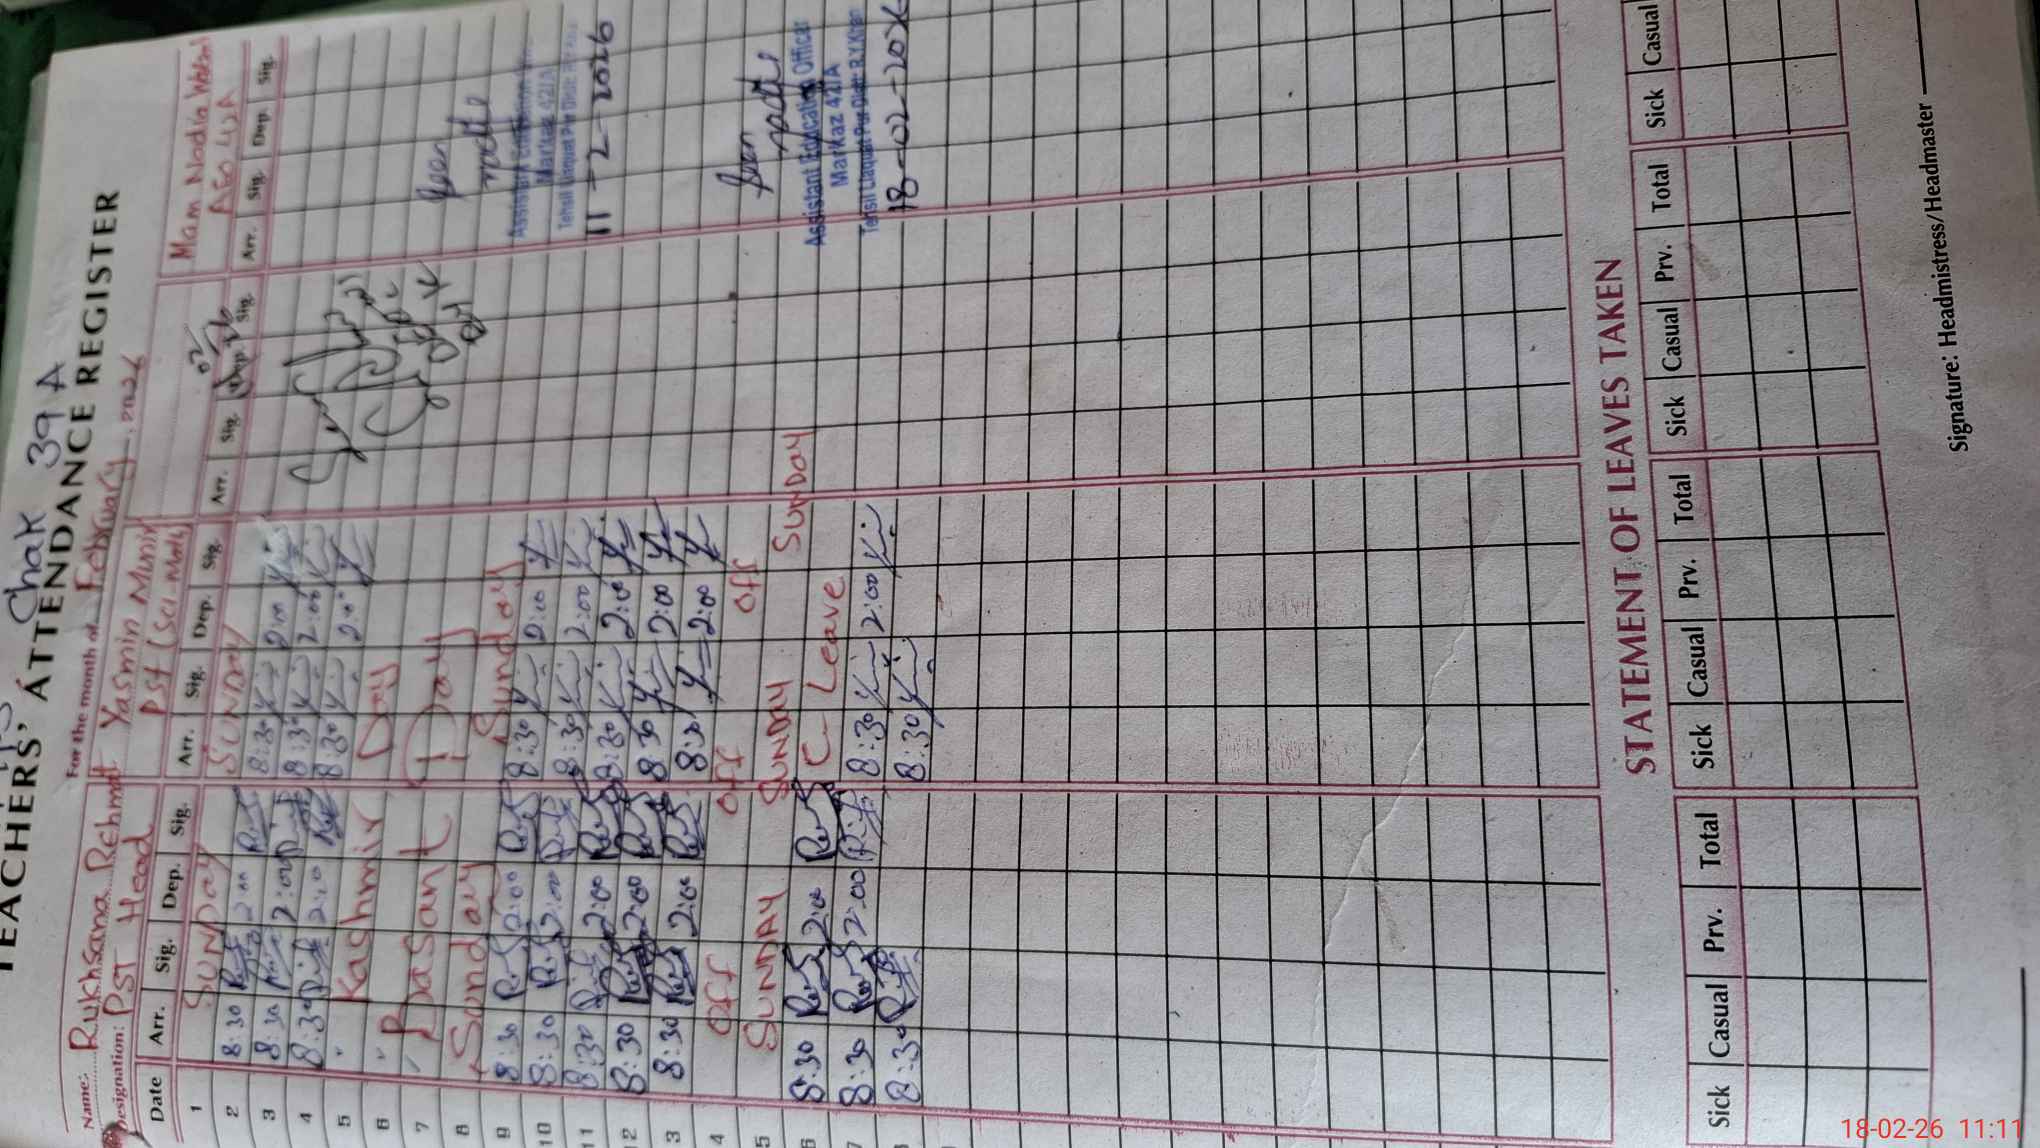 Chak 39 A
TEACHERS' ATTENDANCE REGISTER
For the month of February. 2026
Name: Rukhsana Rehmat Yasmin Munir Mam Nadia
Designation: PST Head PST (Sci-Math) AEO 42A
Date Arr. Sig. Dep. Sig. Arr. Sig. Dep. Sig. Arr. Sig. Dep. Sig. Arr. Sig. Dep. Sig.
1 SUNDay SUNDay
2 8:30 2:00 8:30 2:00
3 8:30 2:00 8:30 2:00
4 8:30 2:00 8:30 2:00
5 Kashmir Day
6
7 Basant Day
8 Sunday Sunday
9 8:30 2:00 8:30 2:00
10 8:30 2:00 8:30 2:00
11 8:30 2:00 8:30 2:00
12 8:30 2:00 8:30 2:00
3 8:30 2:00 8:30 2:00
4 Off Off Off
5 SUNDAY SUNDAY SUNDAY
6 8:30 2:00 C-Leave
7 8:30 2:00 8:30 2:00
8:30 8:30
Seen
Markaz 42/A
11-2-2026
Seen
Assistant Education Officer
Markaz 42/A
Tehsil Liaquat Pur Distt R.Y.Khan
18-02-202
STATEMENT OF LEAVES TAKEN
Sick Casual Prv. Total Sick Casual Prv. Total Sick Casual Prv. Total Sick Casual
Signature: Headmistress/Headmaster
18-02-26 11:11